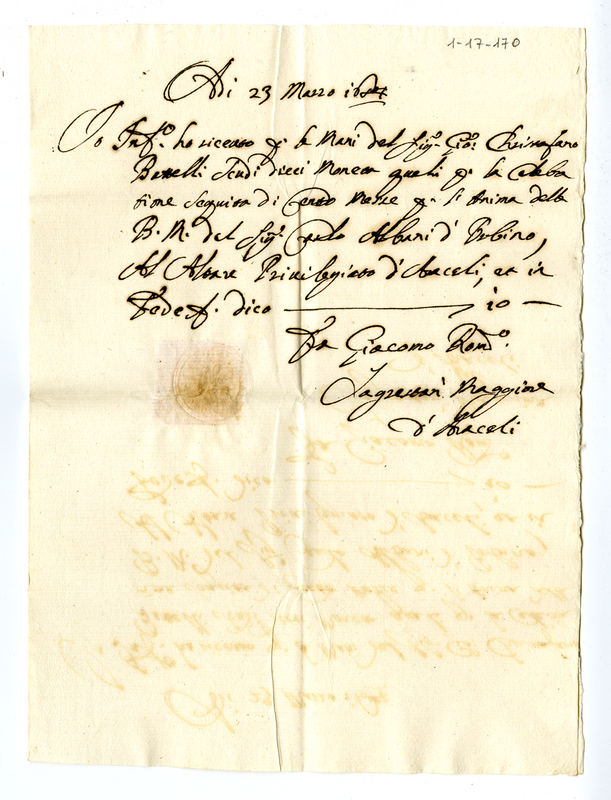 1-17-170
Adi 23 Marzo
Io Info. ho riceuto p. le Mani del Sigr. Gio: Chrisofano
Benelli Scudi dieci Moneta quali p. la Celebra
tione Seguita di Cento Messe p. l'Anima della
B. M. del Sigr. Carlo Albani d'Urbino,
Al Altare Privilegiato d'Araceli, et in
Fede &. dico 10
Fr. Giacomo Romo.
Sagrestano Maggiore
d'Araceli